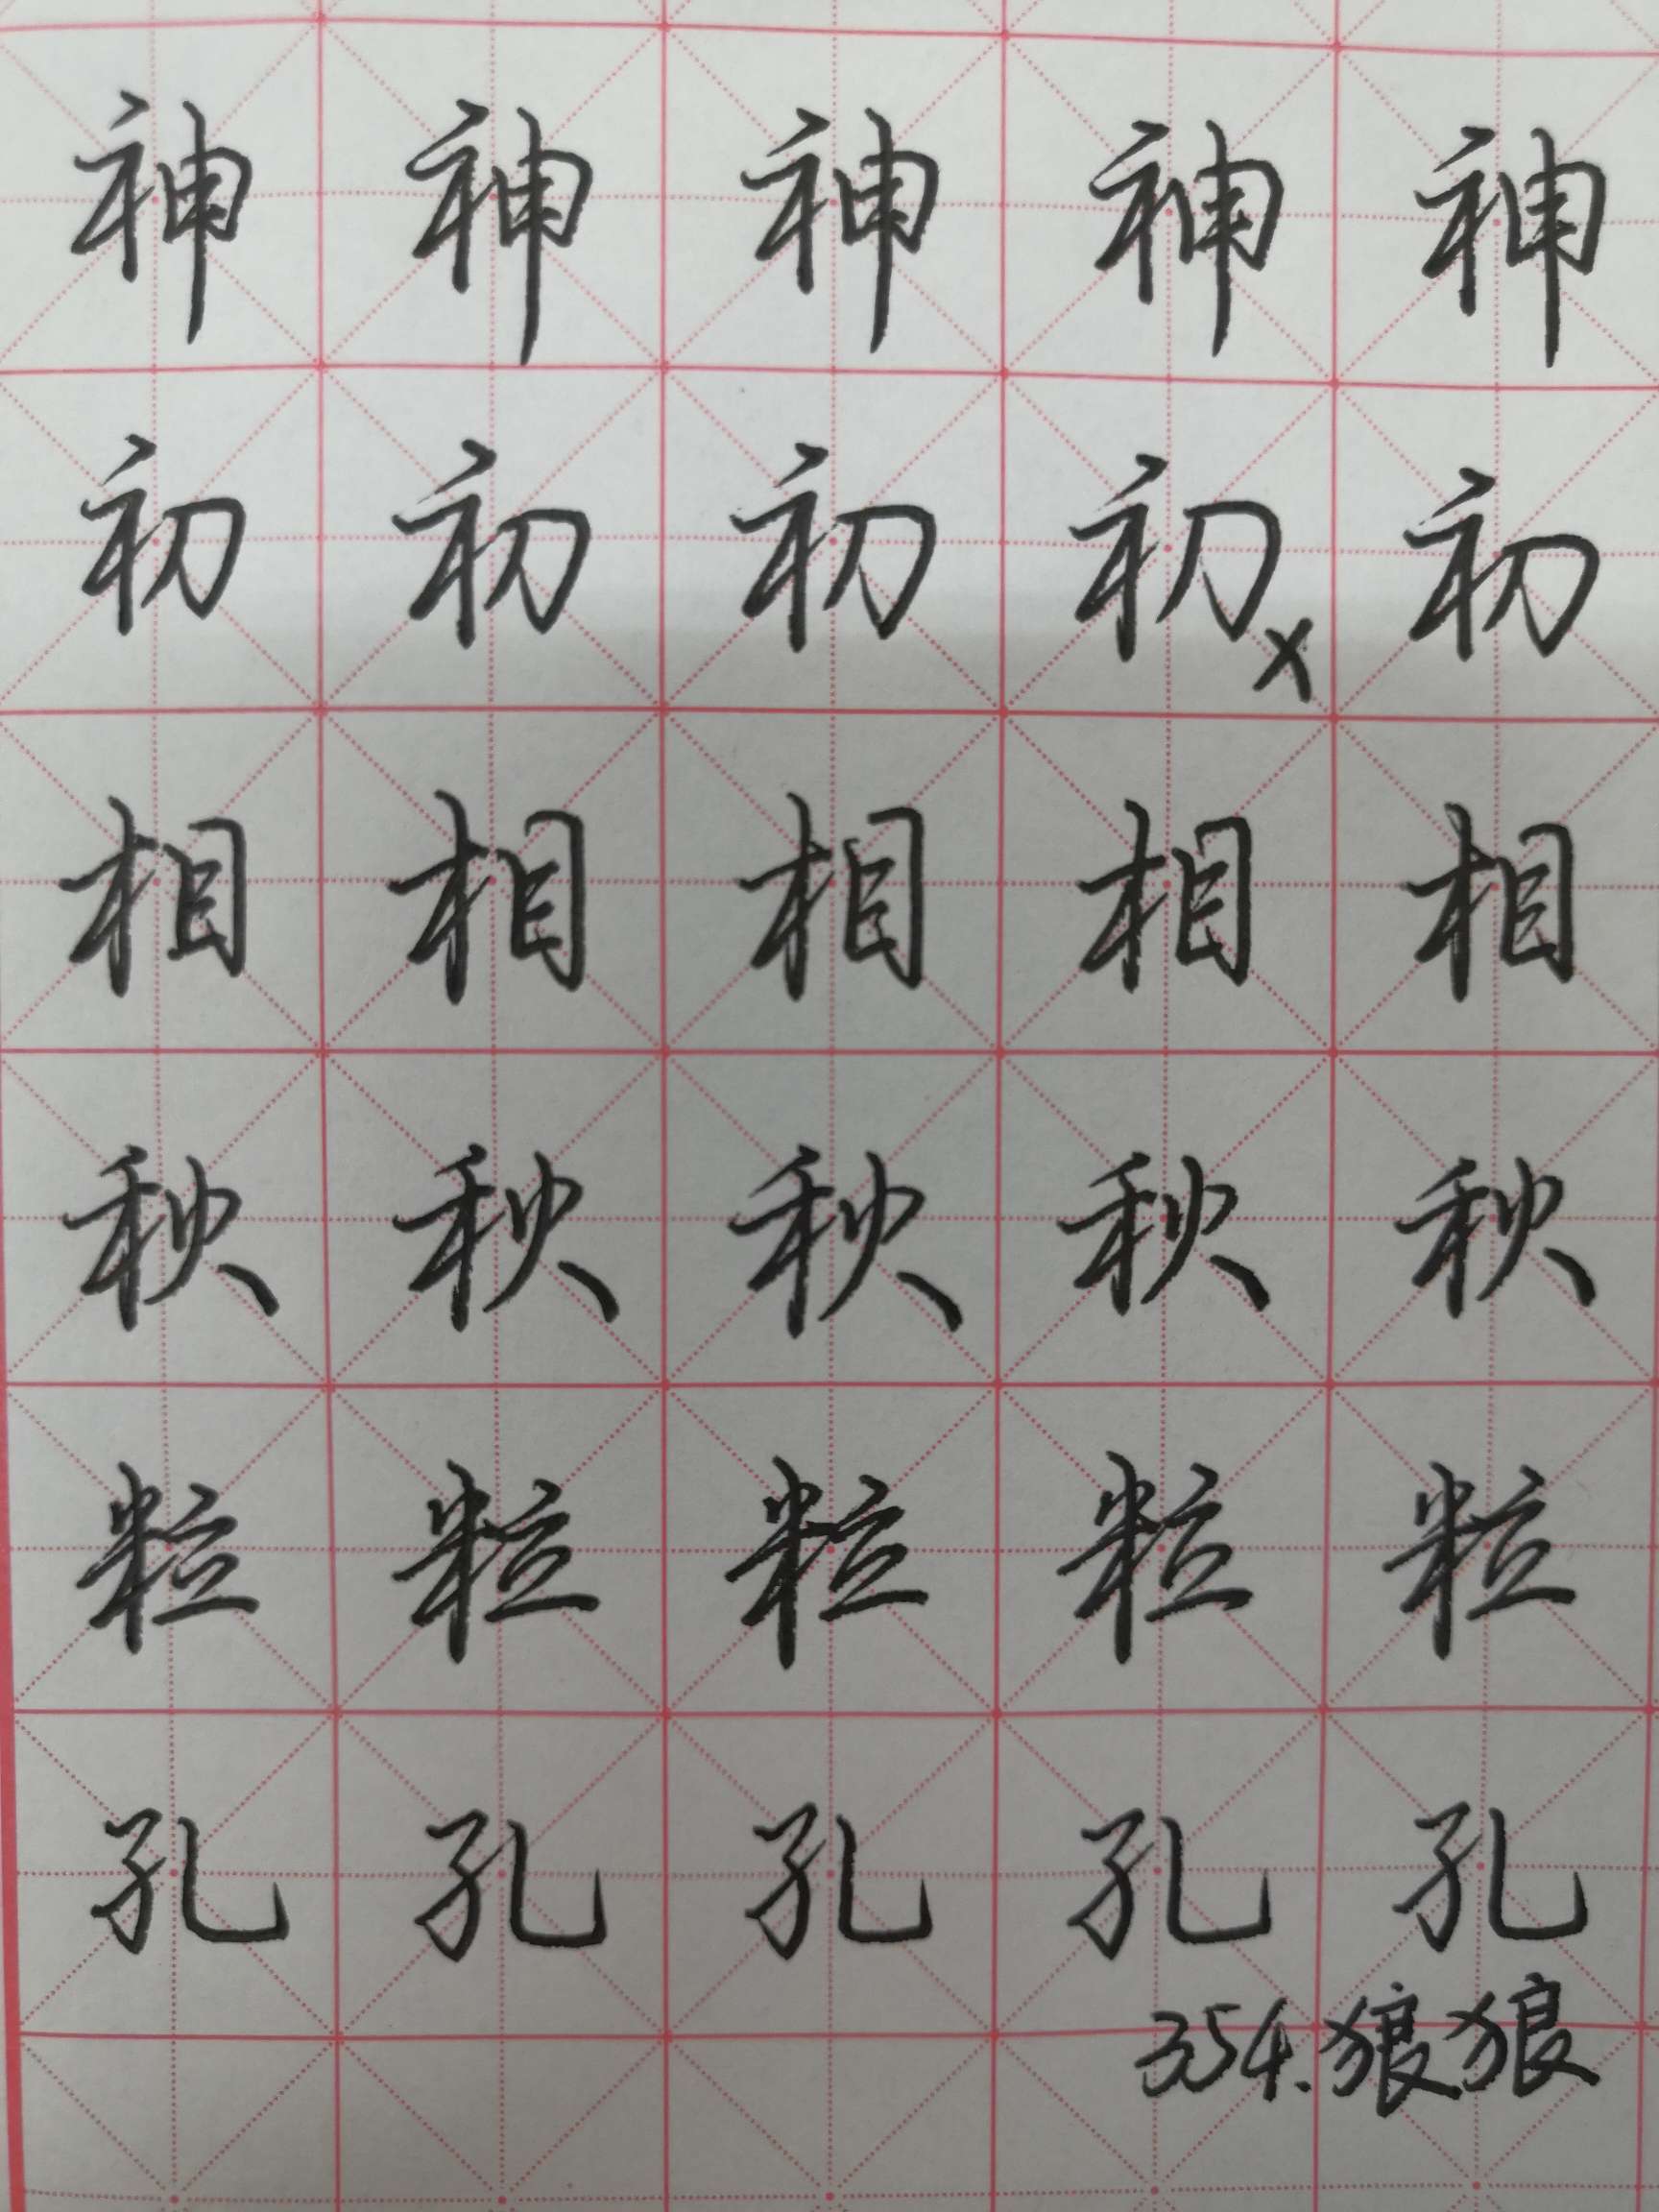 神神神神神
初初初初x初
相相相相相
秋秋秋秋秋
粒粒粒粒粒
孔孔孔孔孔
354.狼狼